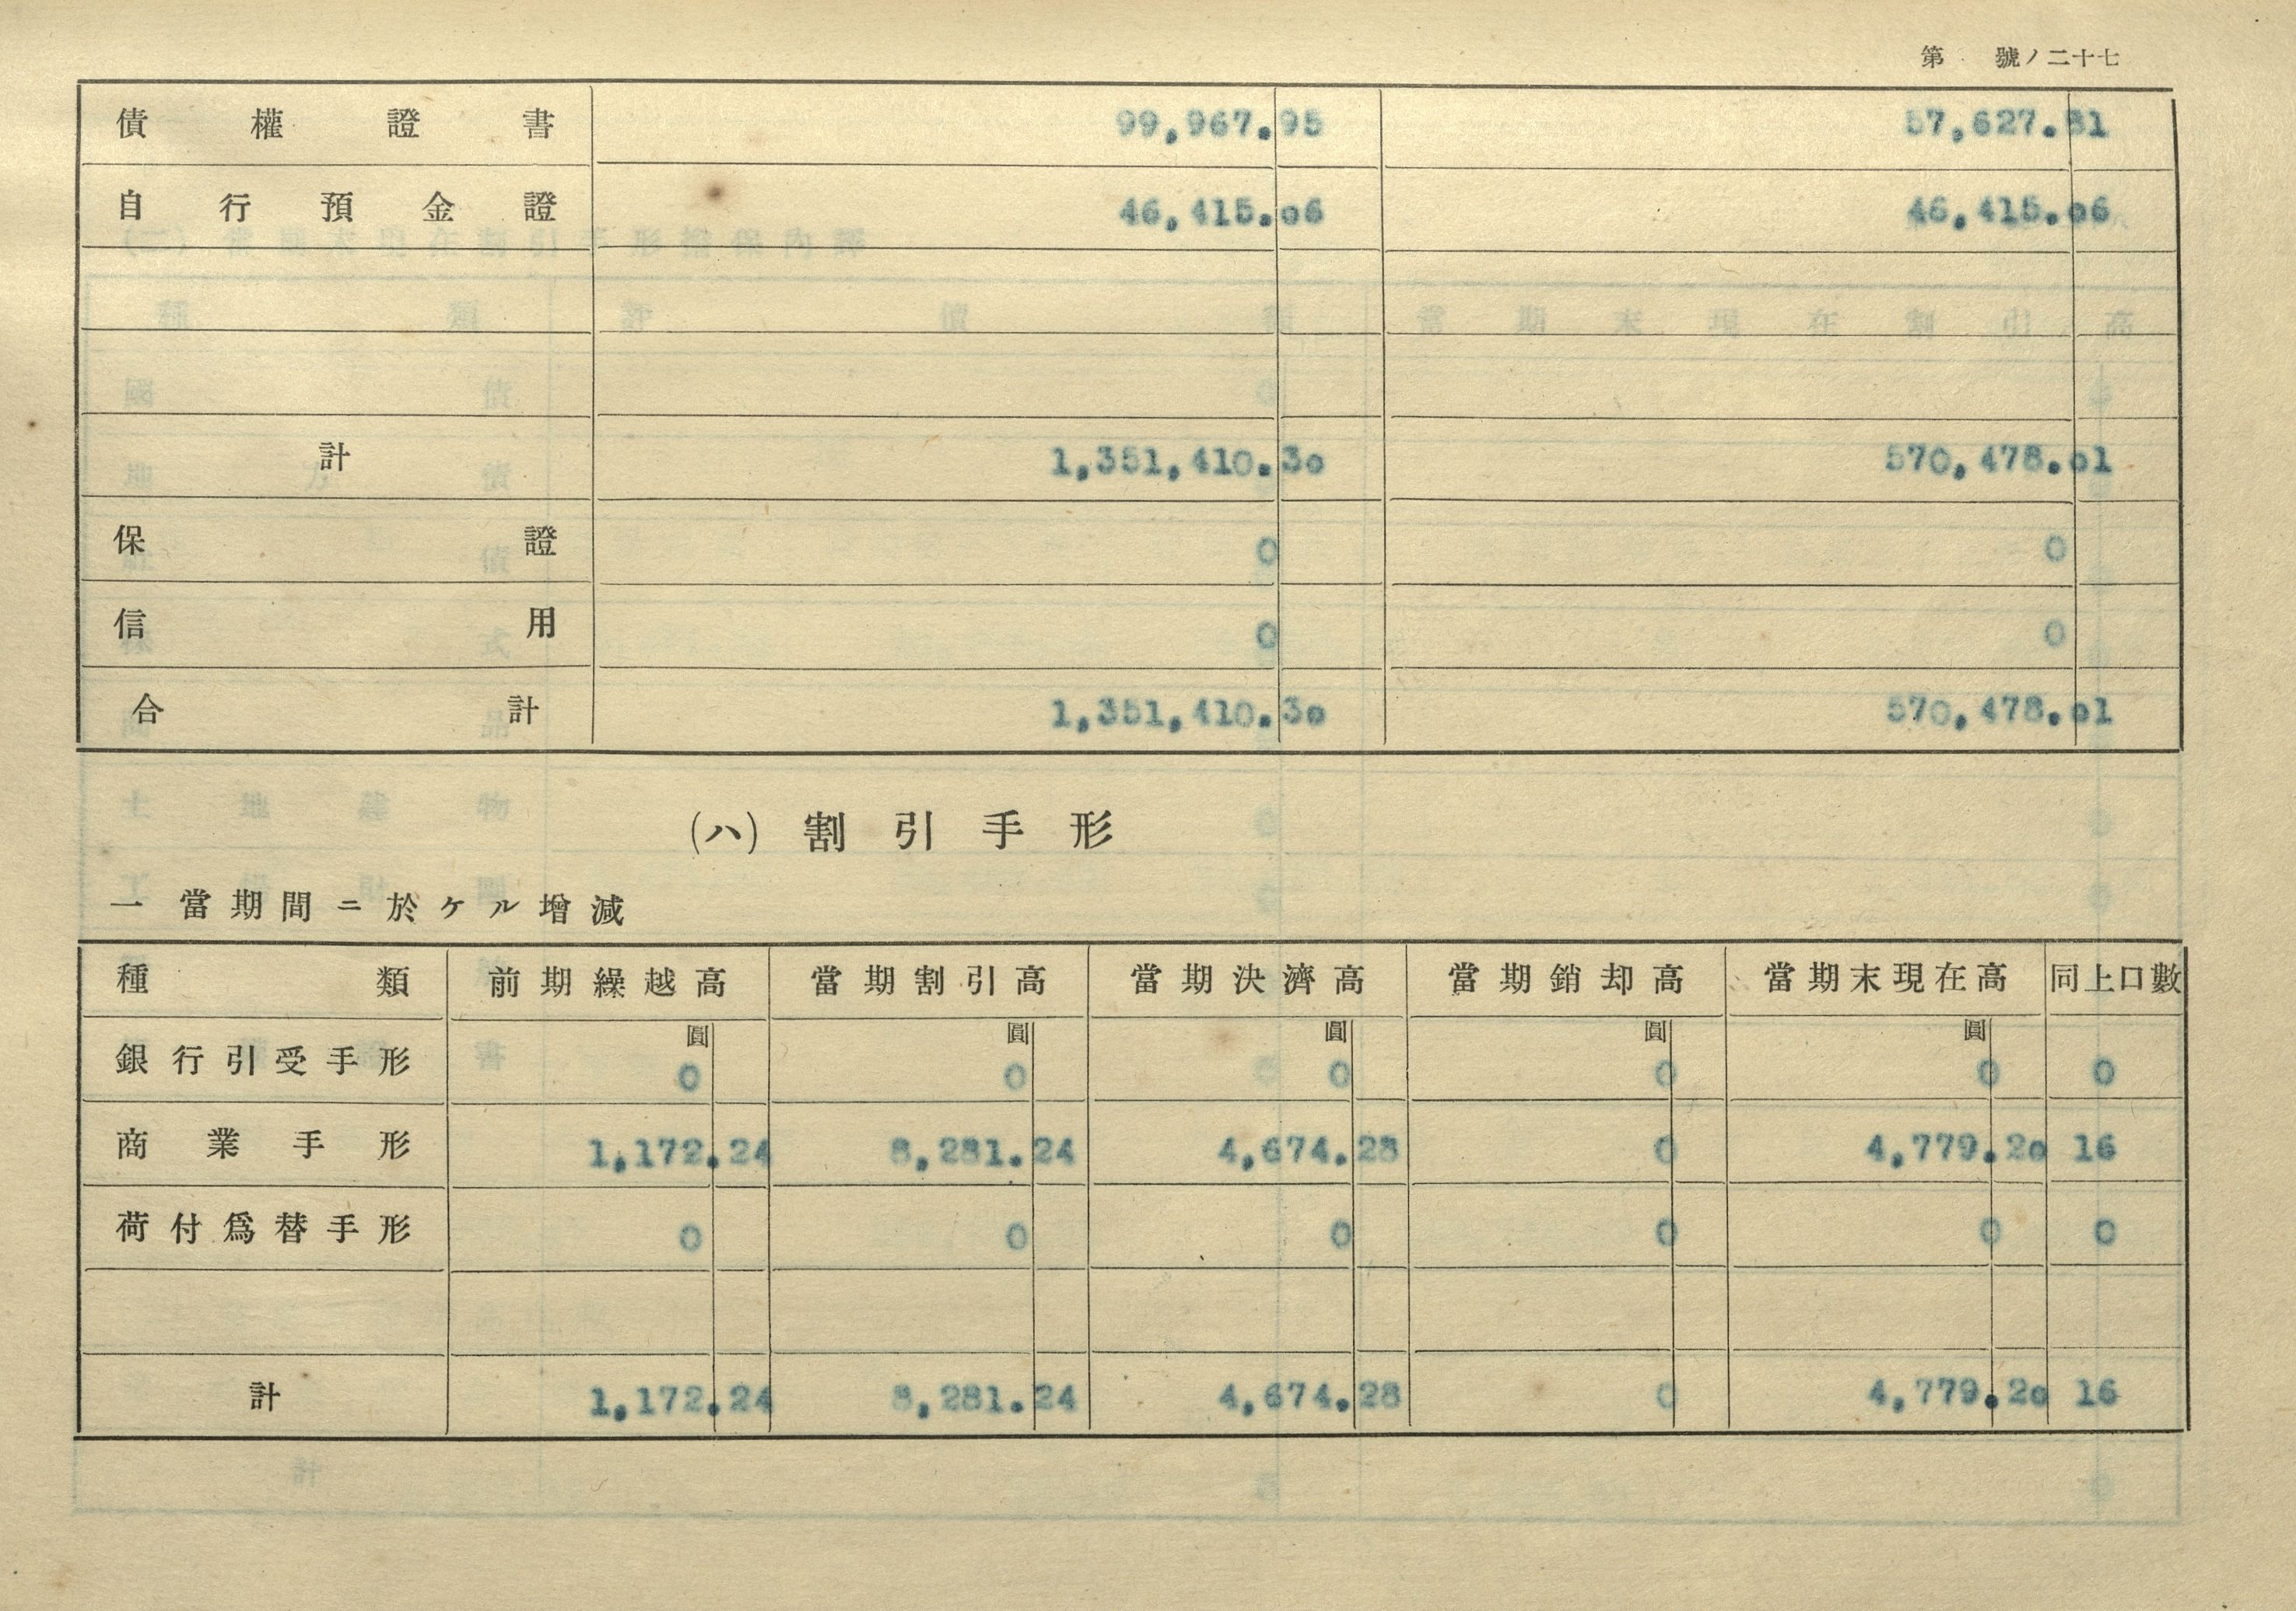 第 號ノ二十七
債權證書 99,967.95 57,627.81
自行預金證 46,415.06 46,415.06
計 1,351,410.30 570,478.01
保證 0 0
信用 0 0
合計 1,351,410.30 570,478.01
(ハ) 割引手形
一 當期間ニ於ケル增減
種類 前期繰越高 當期割引高 當期決濟高 當期銷却高 當期末現在高 同上口數
圓 圓 圓 圓 圓
銀行引受手形 0 0 0 0 0 0
商業手形 1,172.24 8,281.24 4,674.28 0 4,779.20 16
荷付爲替手形 0 0 0 0 0 0
計 1,172.24 8,281.24 4,674.28 0 4,779.20 16